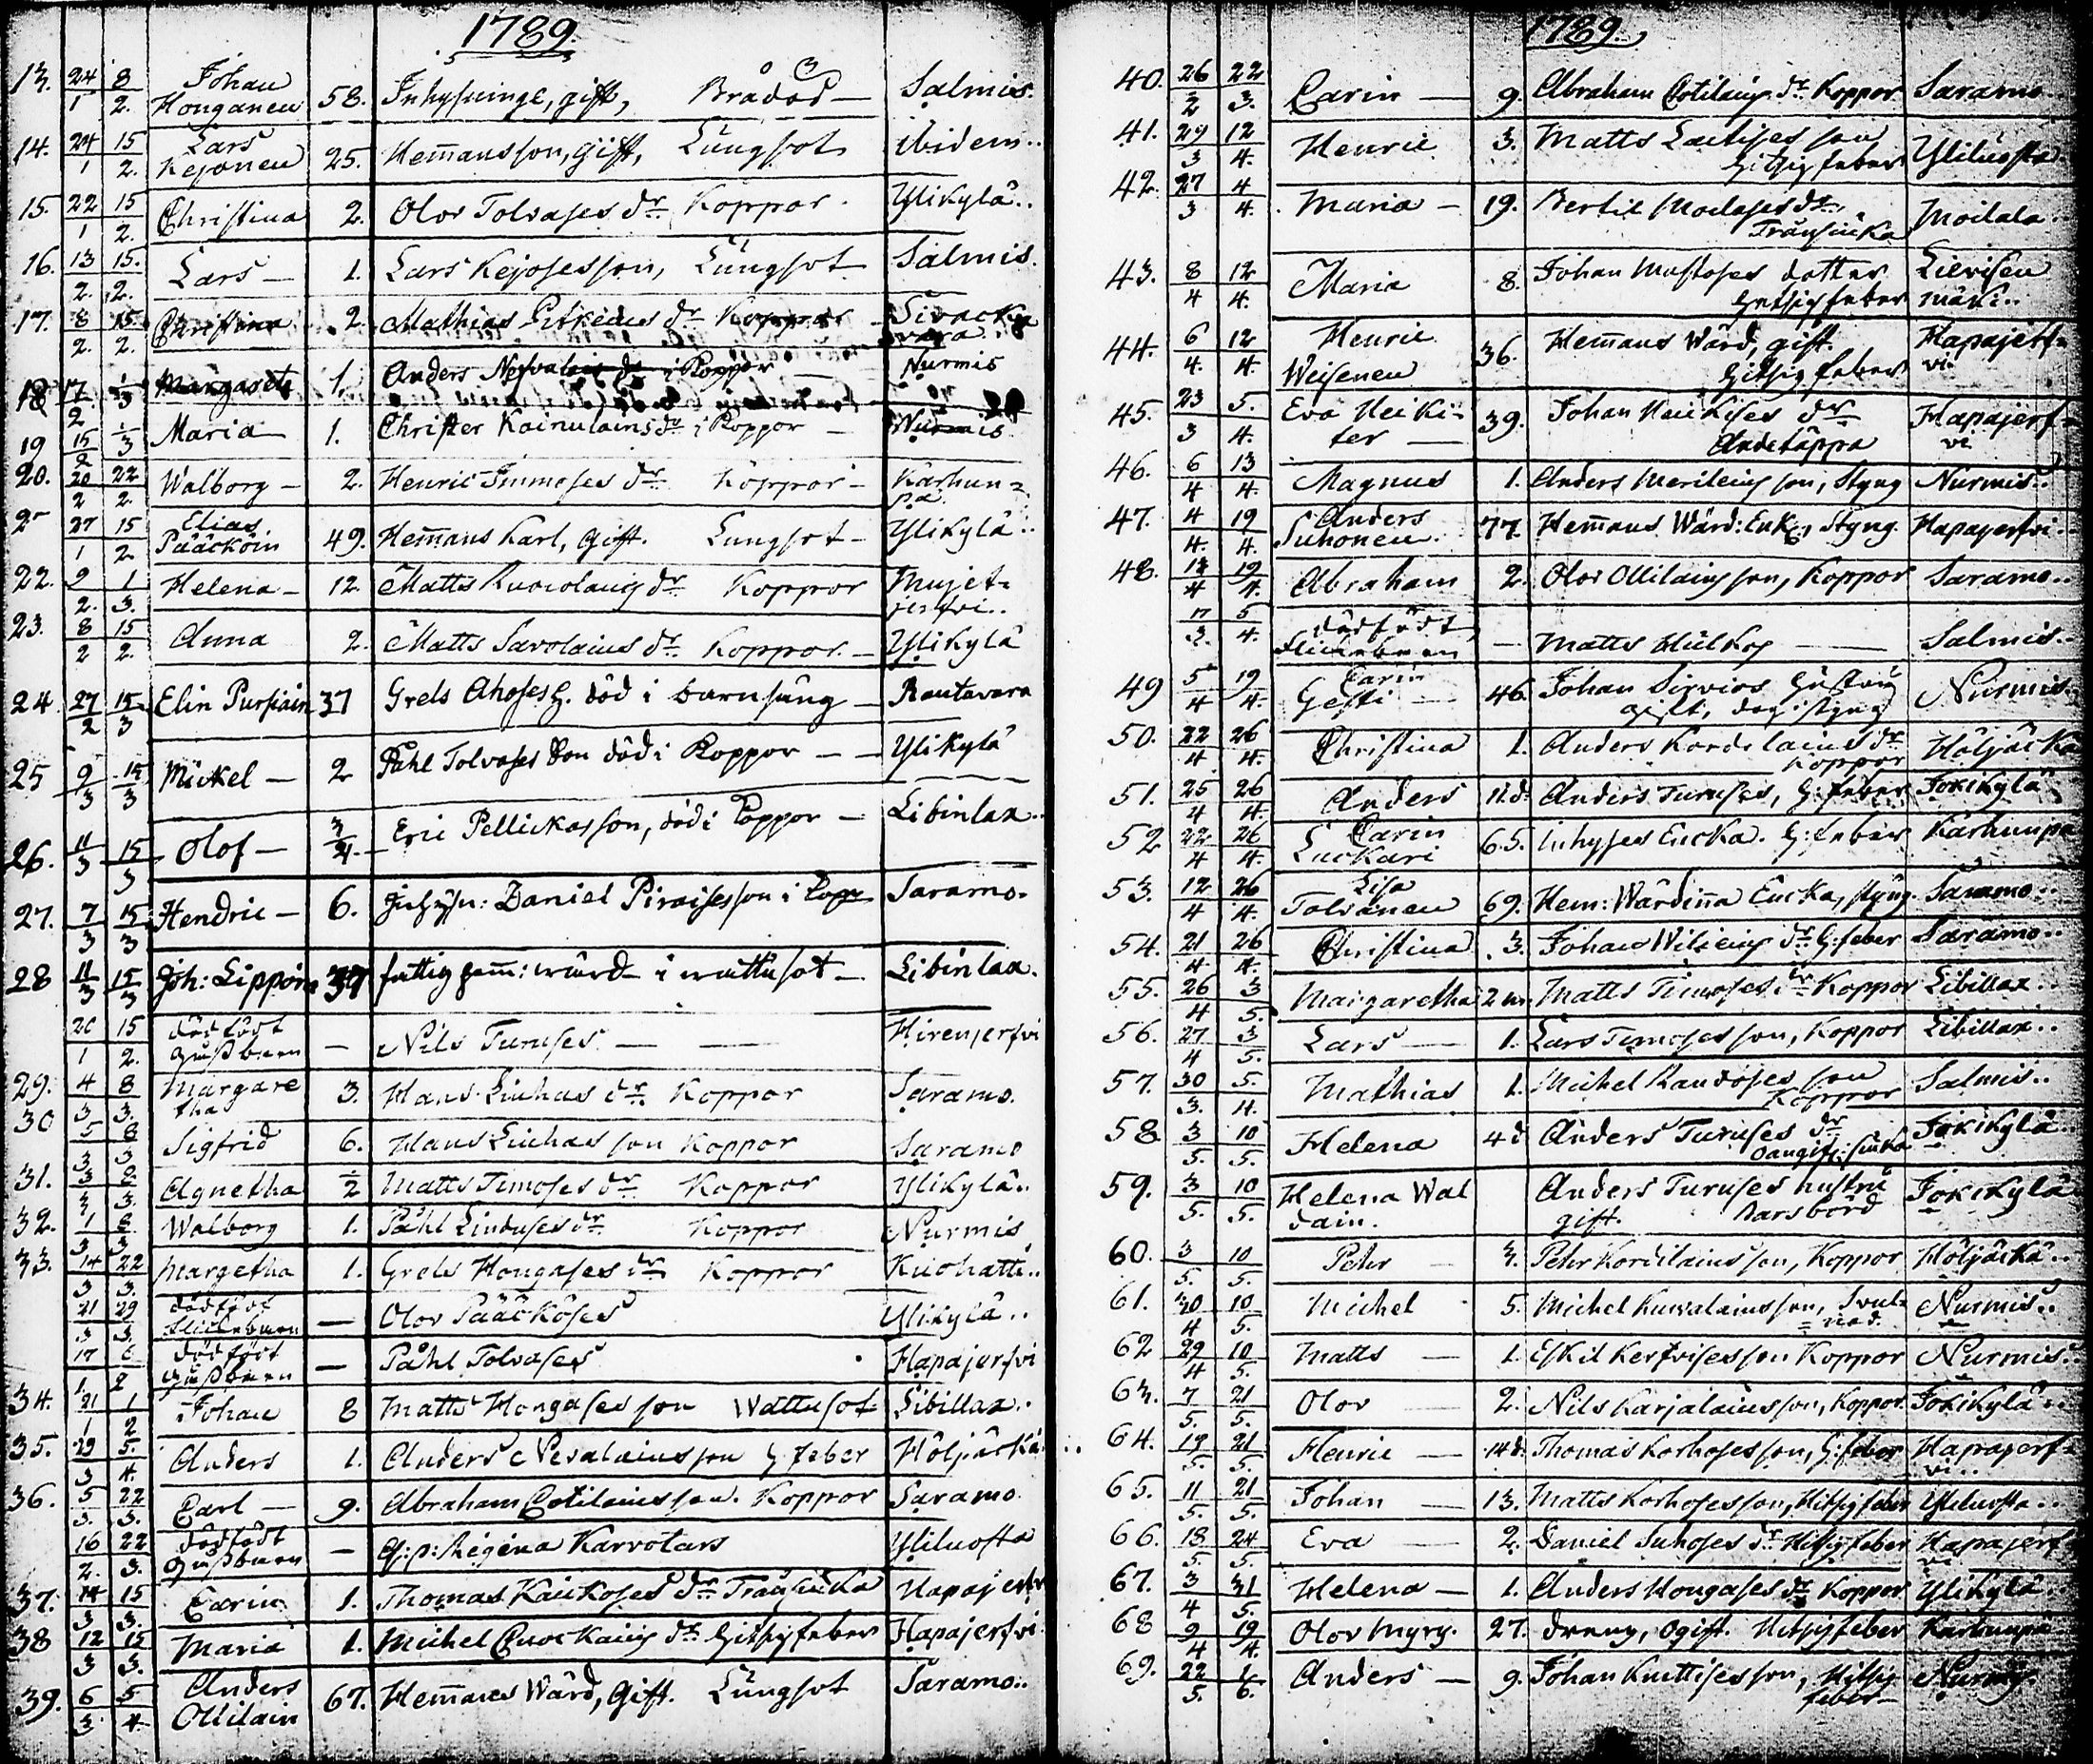 1789.
13. 24/1 8/2. Johan Honganen 58. Inhysinge, gift, Brådöd — Salmis.
14. 24/1 15/2. Lars Kejonen 25. Hem̃ansson, gift, Lungsot ibidem..
15. 22/1 15/2. Christina 2. Olov Tolvases dr Koppor. Ylikylä..
16. 13/2. 15./2. Lars — 1. Lars Kejoses son, Lungsot Salmis.
17. 8/2. 15/2. Christina 2. Mathias dr Koppor
18 17/2 1/3 Margaret 1. Anders dr i Koppor — Nurmis
19 15/2 1/3 Maria — 1. Christer Kainulains dr i Koppor — Nurmis
20. 20/2 22/2. Walborg — 2. Henric Timmoses dr Koppor — Karhun=pä
27/1 15/2 Elias Pääcköin 49. Hem̃ans Karl, gift. Lungsot — Ylikylä..
22. 9/2. 1/3. Helena — 12 Matts dr Koppor Mujet=jerfvi..
23. 8/2 15/2. Anna 2. Matts Savolains dr Koppor. — Ylikylä
24. 27/2 15/3 Elin Pursiain 37 Grels Ahoses h. död i barnsäng — Rautavara
25 9/3 15/3 Mickel — 2 Påhl Tolvases Son död i Koppor — — Ylikylä
26. 11/3 15/3 Olof — 3/4. Eric Pellickas son, död i Koppor — Libinlax..
27. 7/3 15/3 Hendric — 6. Inhysn: Daniel Piraises son i Kopp Saramo.
28 11/3 15/3 Joh: Lippoin 37 fattig hem̃: wärd i wattusot — Libinlax.
20/1 15/2. dödfödt gossbarn — Nils Turuses — — Hirenjerfvi
29. 4/3 8/3. Margaretha 3. Hans Liuhas dr Koppor Saramo.
30 5/3 8/3 Sigfrid 6. Hans Liuhas son Koppor Saramo
31. 3/3 8/3. Agnetha 1/2 Matts Timoses dr Koppor Ylikylä..
32. 1/3 8/3. Walborg 1. Påhl dr Koppor Nurmis
33. 14/3 22/3. Margetha 1. Grels Hongases dr Koppor Kuohatti..
21/3 29/3. dödfödt flickebarn — Olov Pääcköses Ylikylä..
17/1 6/2 dödfödt gossbarn — Påhl Tolvases Hapajerfvi
34. 21/1 1/2 Johan 8 Matts Hongases son Wattusot Libillax..
35. 29/3 5./4. Anders 1. Anders Nevalains son h. feber Höljäckä..
36. 5/3. 22/3. Carl — 9. Abraham Cotilains son. Koppor Saramo.
16/2. 22/3. dödfödt gossbarn — Regina Karvotars Yliluosta
37. 14/3 15/3. Carin 1. Thomas Kaickoses dr Trånsiucka Hapajerfv
38 12/3 15/3. Maria 1. Michel dr Hitsigfeber Hapajerfvi.
39. 6/3 5/4. Anders Ollilain 67. Hem̃ans Wärd, Gift. Lungsot Saramo..
1789.
40. 26/2 22/3. Carin — 9. Abraham Cotilains dr Koppor Saramo..
41. 29/3 12/4. Henric 3. Matts son Hitsigfeber Yliluosta.
42. 27/3 4/4. Maria — 19. Bertil dr Trånsiucka Moilala.
43. 8/4 12/4. Maria 8. Johan Mustoses dotter Hetsigfeber Lievisen mäki..
44. 6/4. 12/4. Henric Weisenen 36. Hem̃ans Wärd, gift. Hitsigfeber Hapajerf=vi.
45. 23/3 5./4. Eva Heikiter — 39. Johan Heickises dr Andetäppa Hapajerf=vi
46. 6/4 13/4. Magnus 1. Anders Merileins son, Styng Nurmis..
47. 4/4. 19/4. Anders Suhonen. 77. Hem̃ans Wärd: Enk, Styng. Hapajerfvi..
48. 13/4 19/4. Abraham 2. Olov Ollilains son, Koppor Saramo..
17/3. 5/4. dödfödt flickebarn — Matts — Salmis..
49 5/4 19/4. Carin Gesti — 46. Johan Sirvios hustru gift, Nurmis.
50. 22/4 26/4. Christina 1. Anders Kordelains dr Koppor Höljäcka
51. 25/4 26/4. Anders 11 d. Anders Turuses, h: feber Jokikylä
52 22/4 26/4. Carin Luckari 65. Inhyses Encka. h: feber Karhunpä
53. 12/4 26/4. Lisa Tolvanen 69. Hem: Wärdin̄a Encka, styng. Saramo..
54. 21/4. 26/4. Christina 3. Johan dr h: feber Saramo..
55. 26/4 3/5. Margaretha 2 m. Matts Timoses dr Koppor Libillax..
56. 27/4 3/5. Lars — 1. Lars Timoses son, Koppor Libillax..
57. 30/3. 5./4. Mathias 1. Michel son Koppor Salmis..
58 3/5. 10/5. Helena 4 d Anders Turuses dr Oangif: siuka Jokikylä..
59. 3/5. 10/5. Helena Waldain. Anders Turuses hustru gift. barsbörd Jokikylä
60. 3/5. 10/5. Petr — 3. Petr Kordelains son, Koppor Höljäckä..
61. 30/4 10/5. Michel 5. Michel Kuvalains son, Svul=nad. Nurmis..
62 29/4 10/5. Matts — 1. Eskil Kerfvises son Koppor Nurmis.
63. 7/5. 21/5. Olov 2. Nils Karjalains son, Koppor. Jokikylä..
64. 19/5. 21/5. Henric — 14 d. Thomas Korhoses son, h: feber Hapajerf=vi..
65. 11/5. 21/5. Johan — 13. Matts Korhoses son, Hitsigfeber Yliluosta..
66. 18/5. 24/5. Eva — 2. Daniel Suhoses dr Hitsigfeber Hapajerf=vi
67. 3/4 31/5. Helena — 1. Anders Hongases dr Koppor Ylikylä
68 9/4 19/4. Olov Myry. 27. dreng, ogift. Hitsigfeber Karhunpä
69. 22/5. 1/6. Anders — 9. Johan Knuttises son, Hitsig feber — Nurmis.